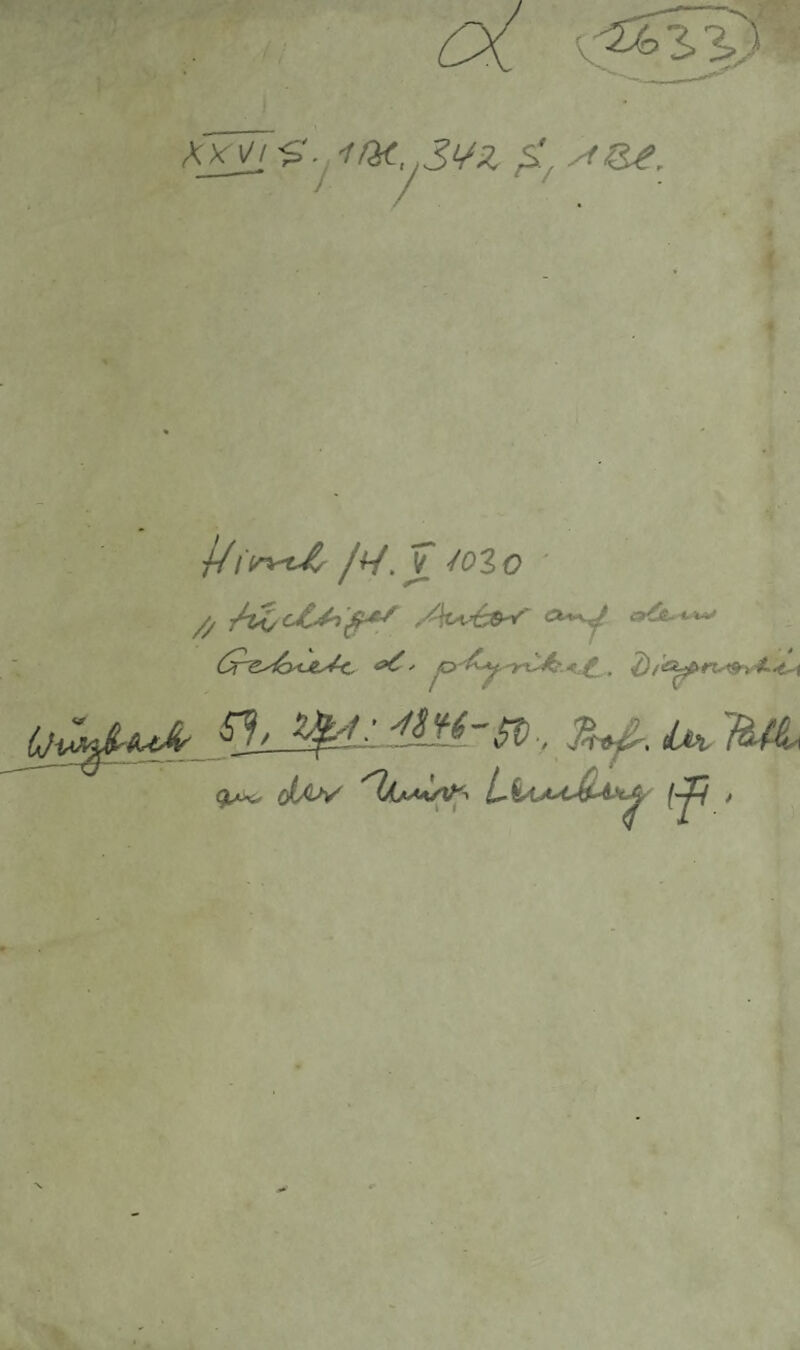 2633
XXVI S., 1 Bl., 342 S., 1 Bl.
Hirsch /H. V 1030
// tüchtiger Autor auf dem
Gebiete d. physikal. Diagnostik
Wurzbach 59, 271: 1846-50, Prof. der Path
an der Univ. Lemberg